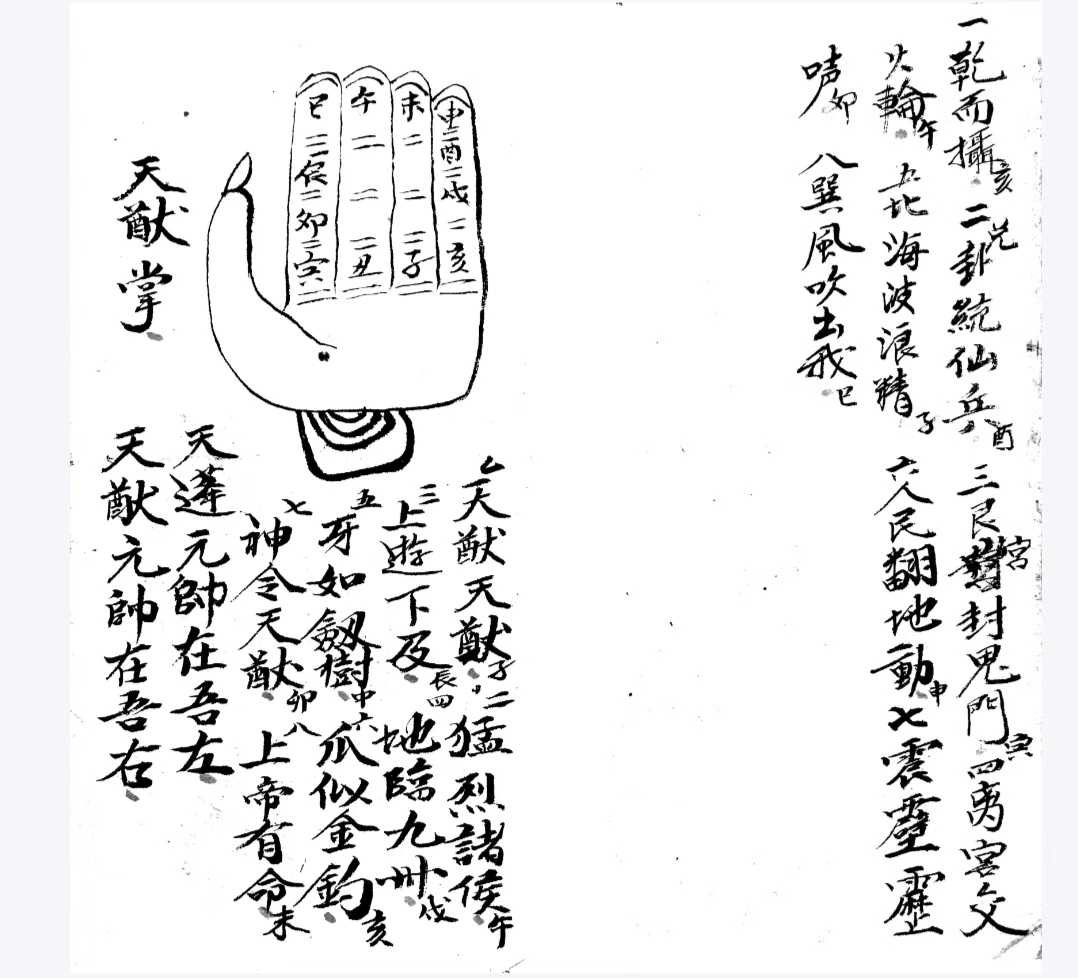 一乾而攝亥 二兌卦統仙兵酉 三艮宮封鬼門寅 四离宮交
火輪午 五北海波浪精子 六人民翻地動申 七震霹靂
唭卯 八巽風吹出我巳
申酉戌亥
未子
午丑
巳辰卯寅
天猷掌
乙天猷天猷子 二猛烈諸侯午
三上遊下及辰 四地臨九州戌
五牙如劔樹申 六爪似金鈎亥
七神令天猷卯 八上帝有命未
天蓬元帥在吾左
天猷元帥在吾右